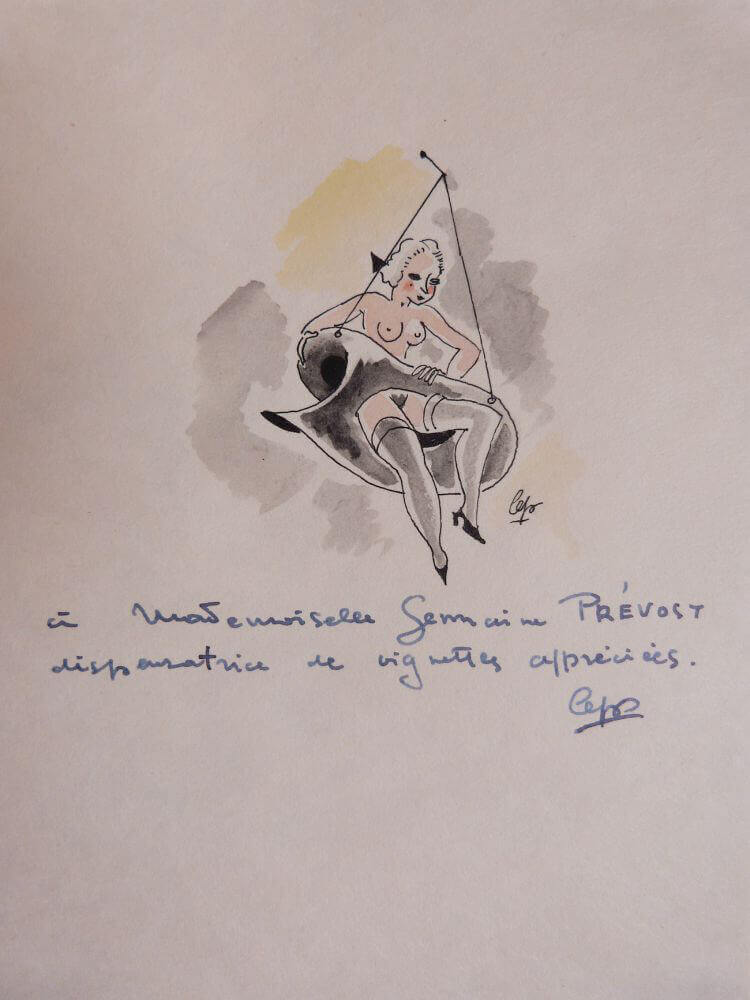 à Mademoiselle Germaine PRÉVOST
dispensatrice de vignettes appréciées.